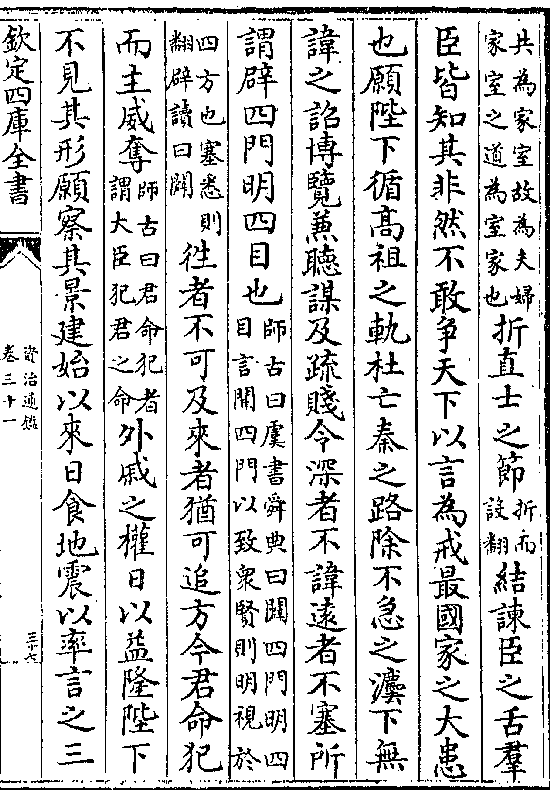 共為家室故為夫婦
家室之道為室家也
折直士之節
折而
設翻
結諫臣之舌羣
臣皆知其非然不敢争天下以言為戒最國家之大患
也願陛下循髙祖之軌杜亡秦之路除不急之灋下無
諱之詔博覽兼聽謀及疏賤令深者不諱遠者不塞所
謂辟四門明四目也
師古曰虞書舜典曰闢四門明四
目言開四門以致衆賢則明視於
四方也塞悉則
翻辟讀曰闢
徃者不可及來者猶可追方今君命犯
而主威奪
師古曰君命犯者
謂大臣犯君之命
外戚之權日以益隆陛下
不見其形願察其景建始以來日食地震以率言之三
欽定四庫全書
資治通鑑
卷三十一
三十七